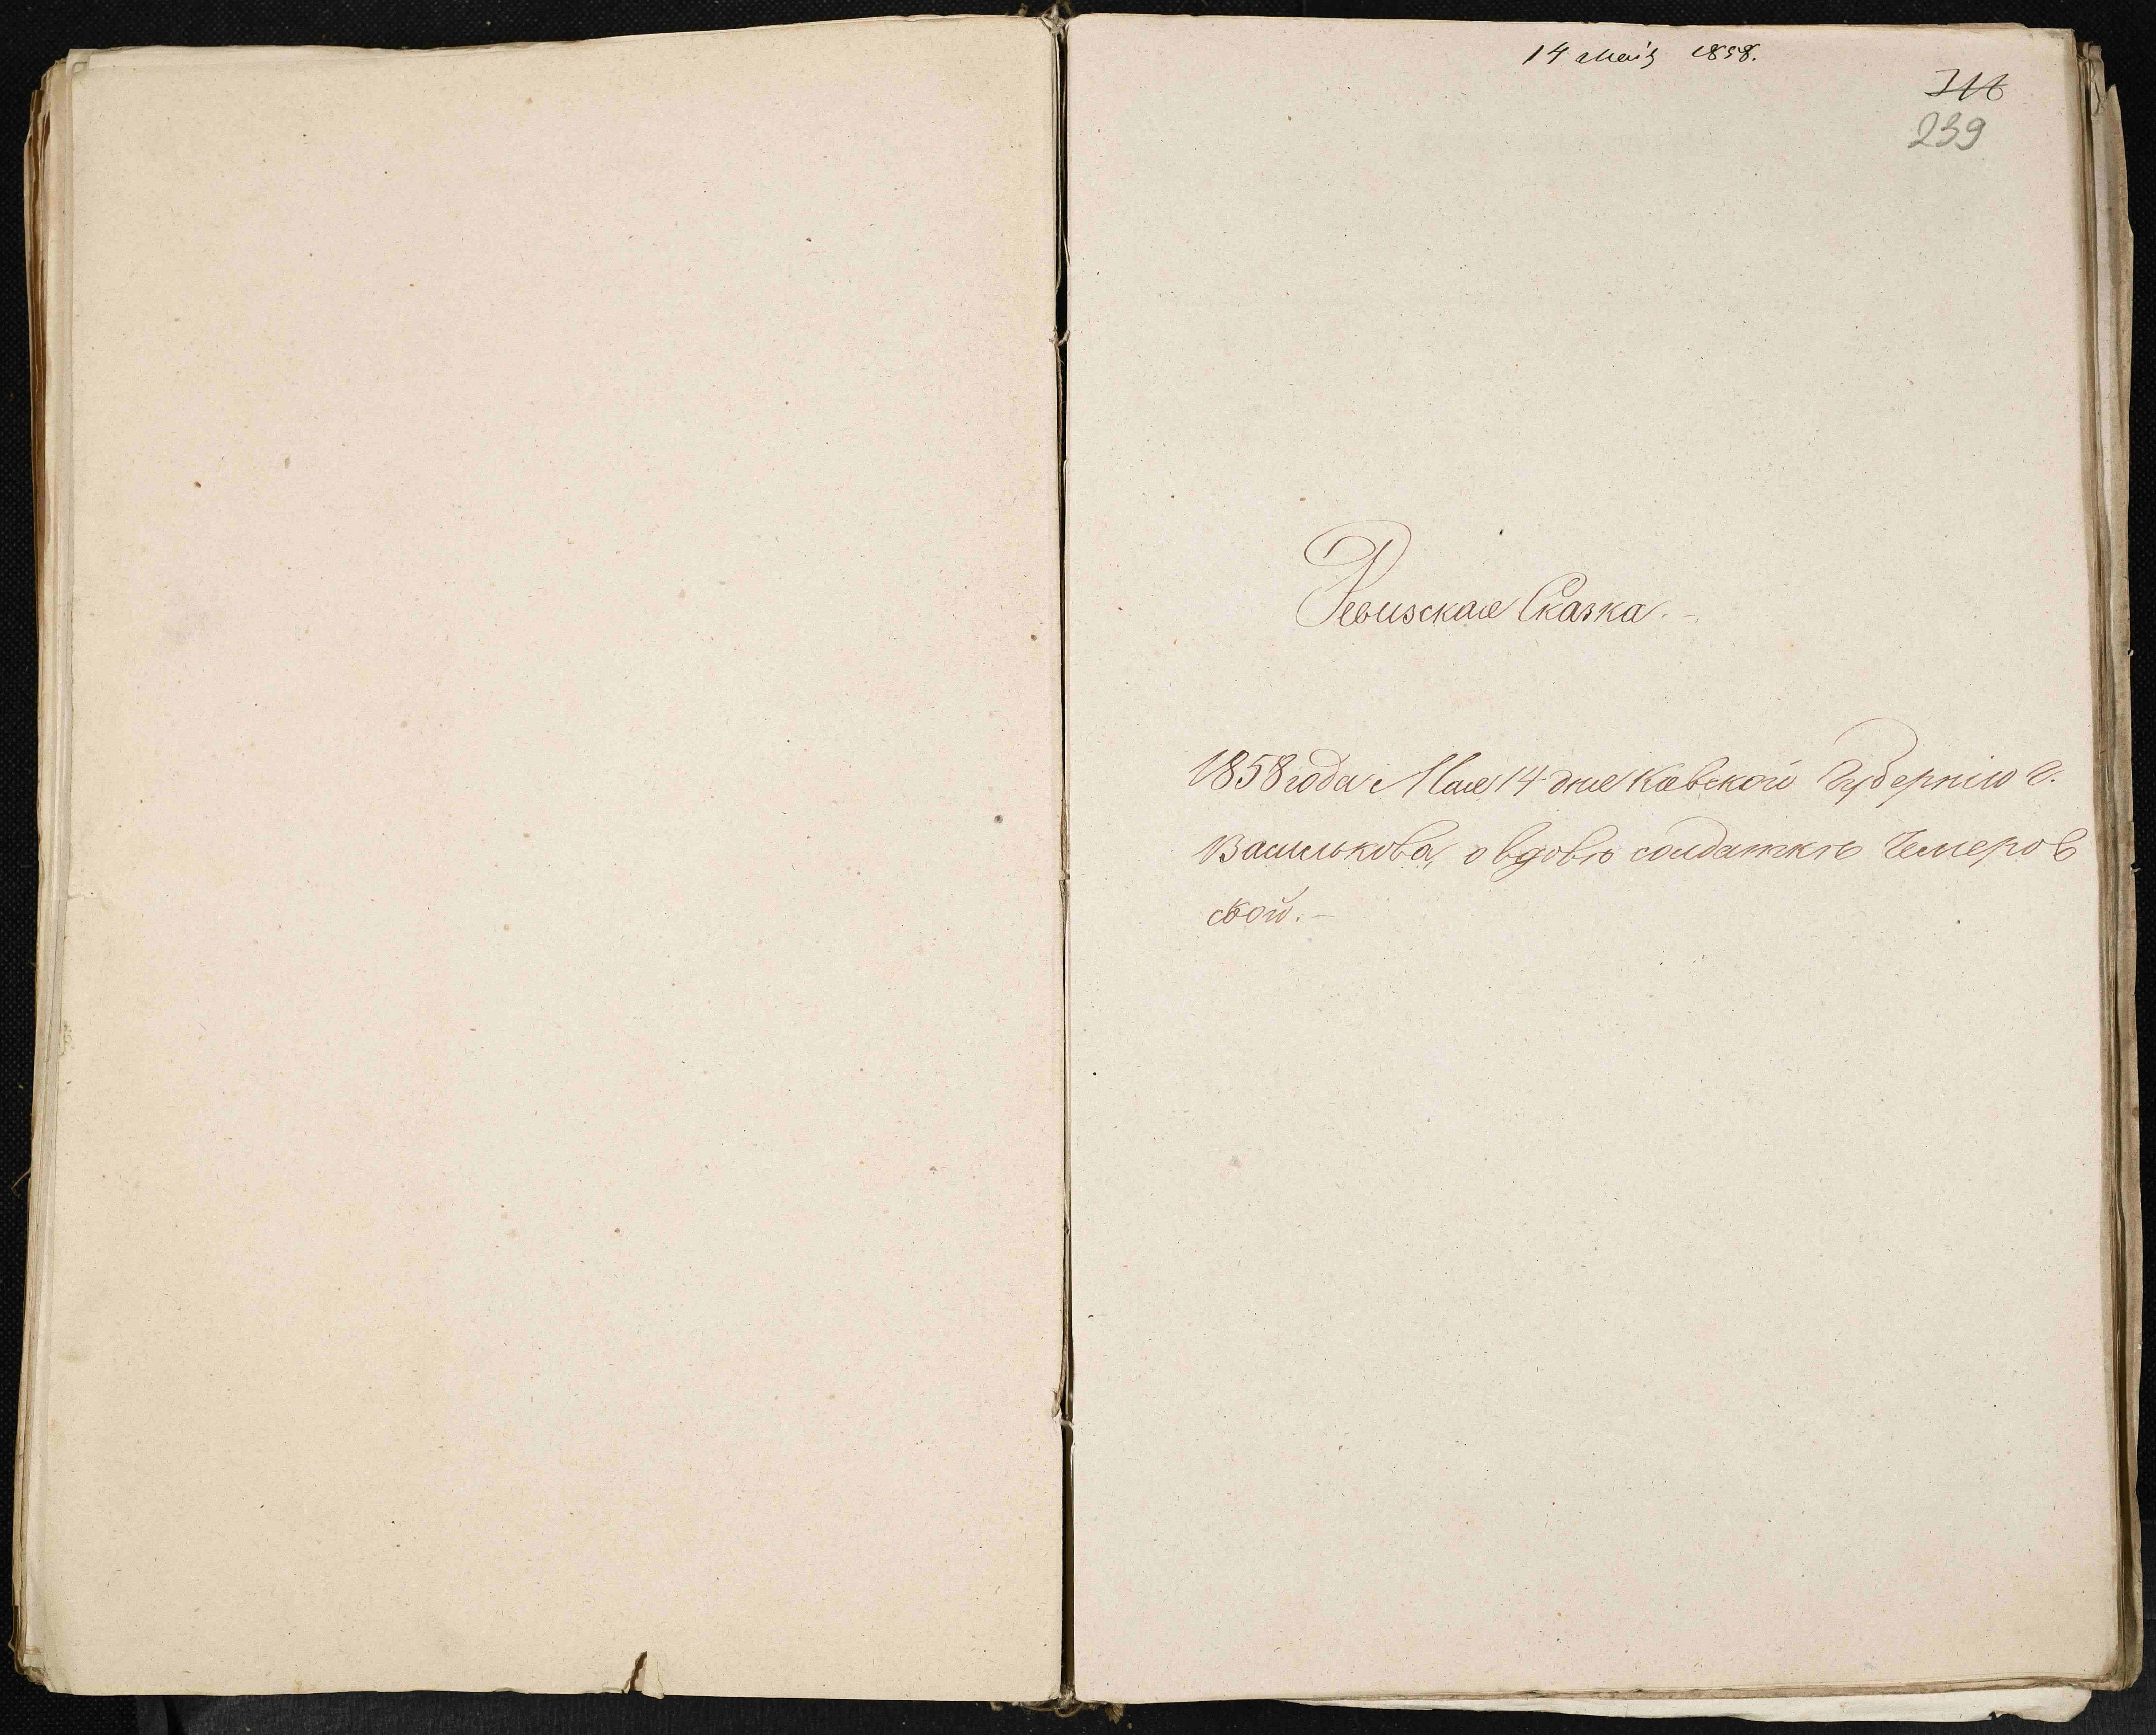 14 Маія 1858.
316
239
Ревизская Сказка.-
1858 года Мая 14 дня Кіевской Губерніи Г.
Василькова, о вдовѣ солдаткѣ Чемеров
ской.-